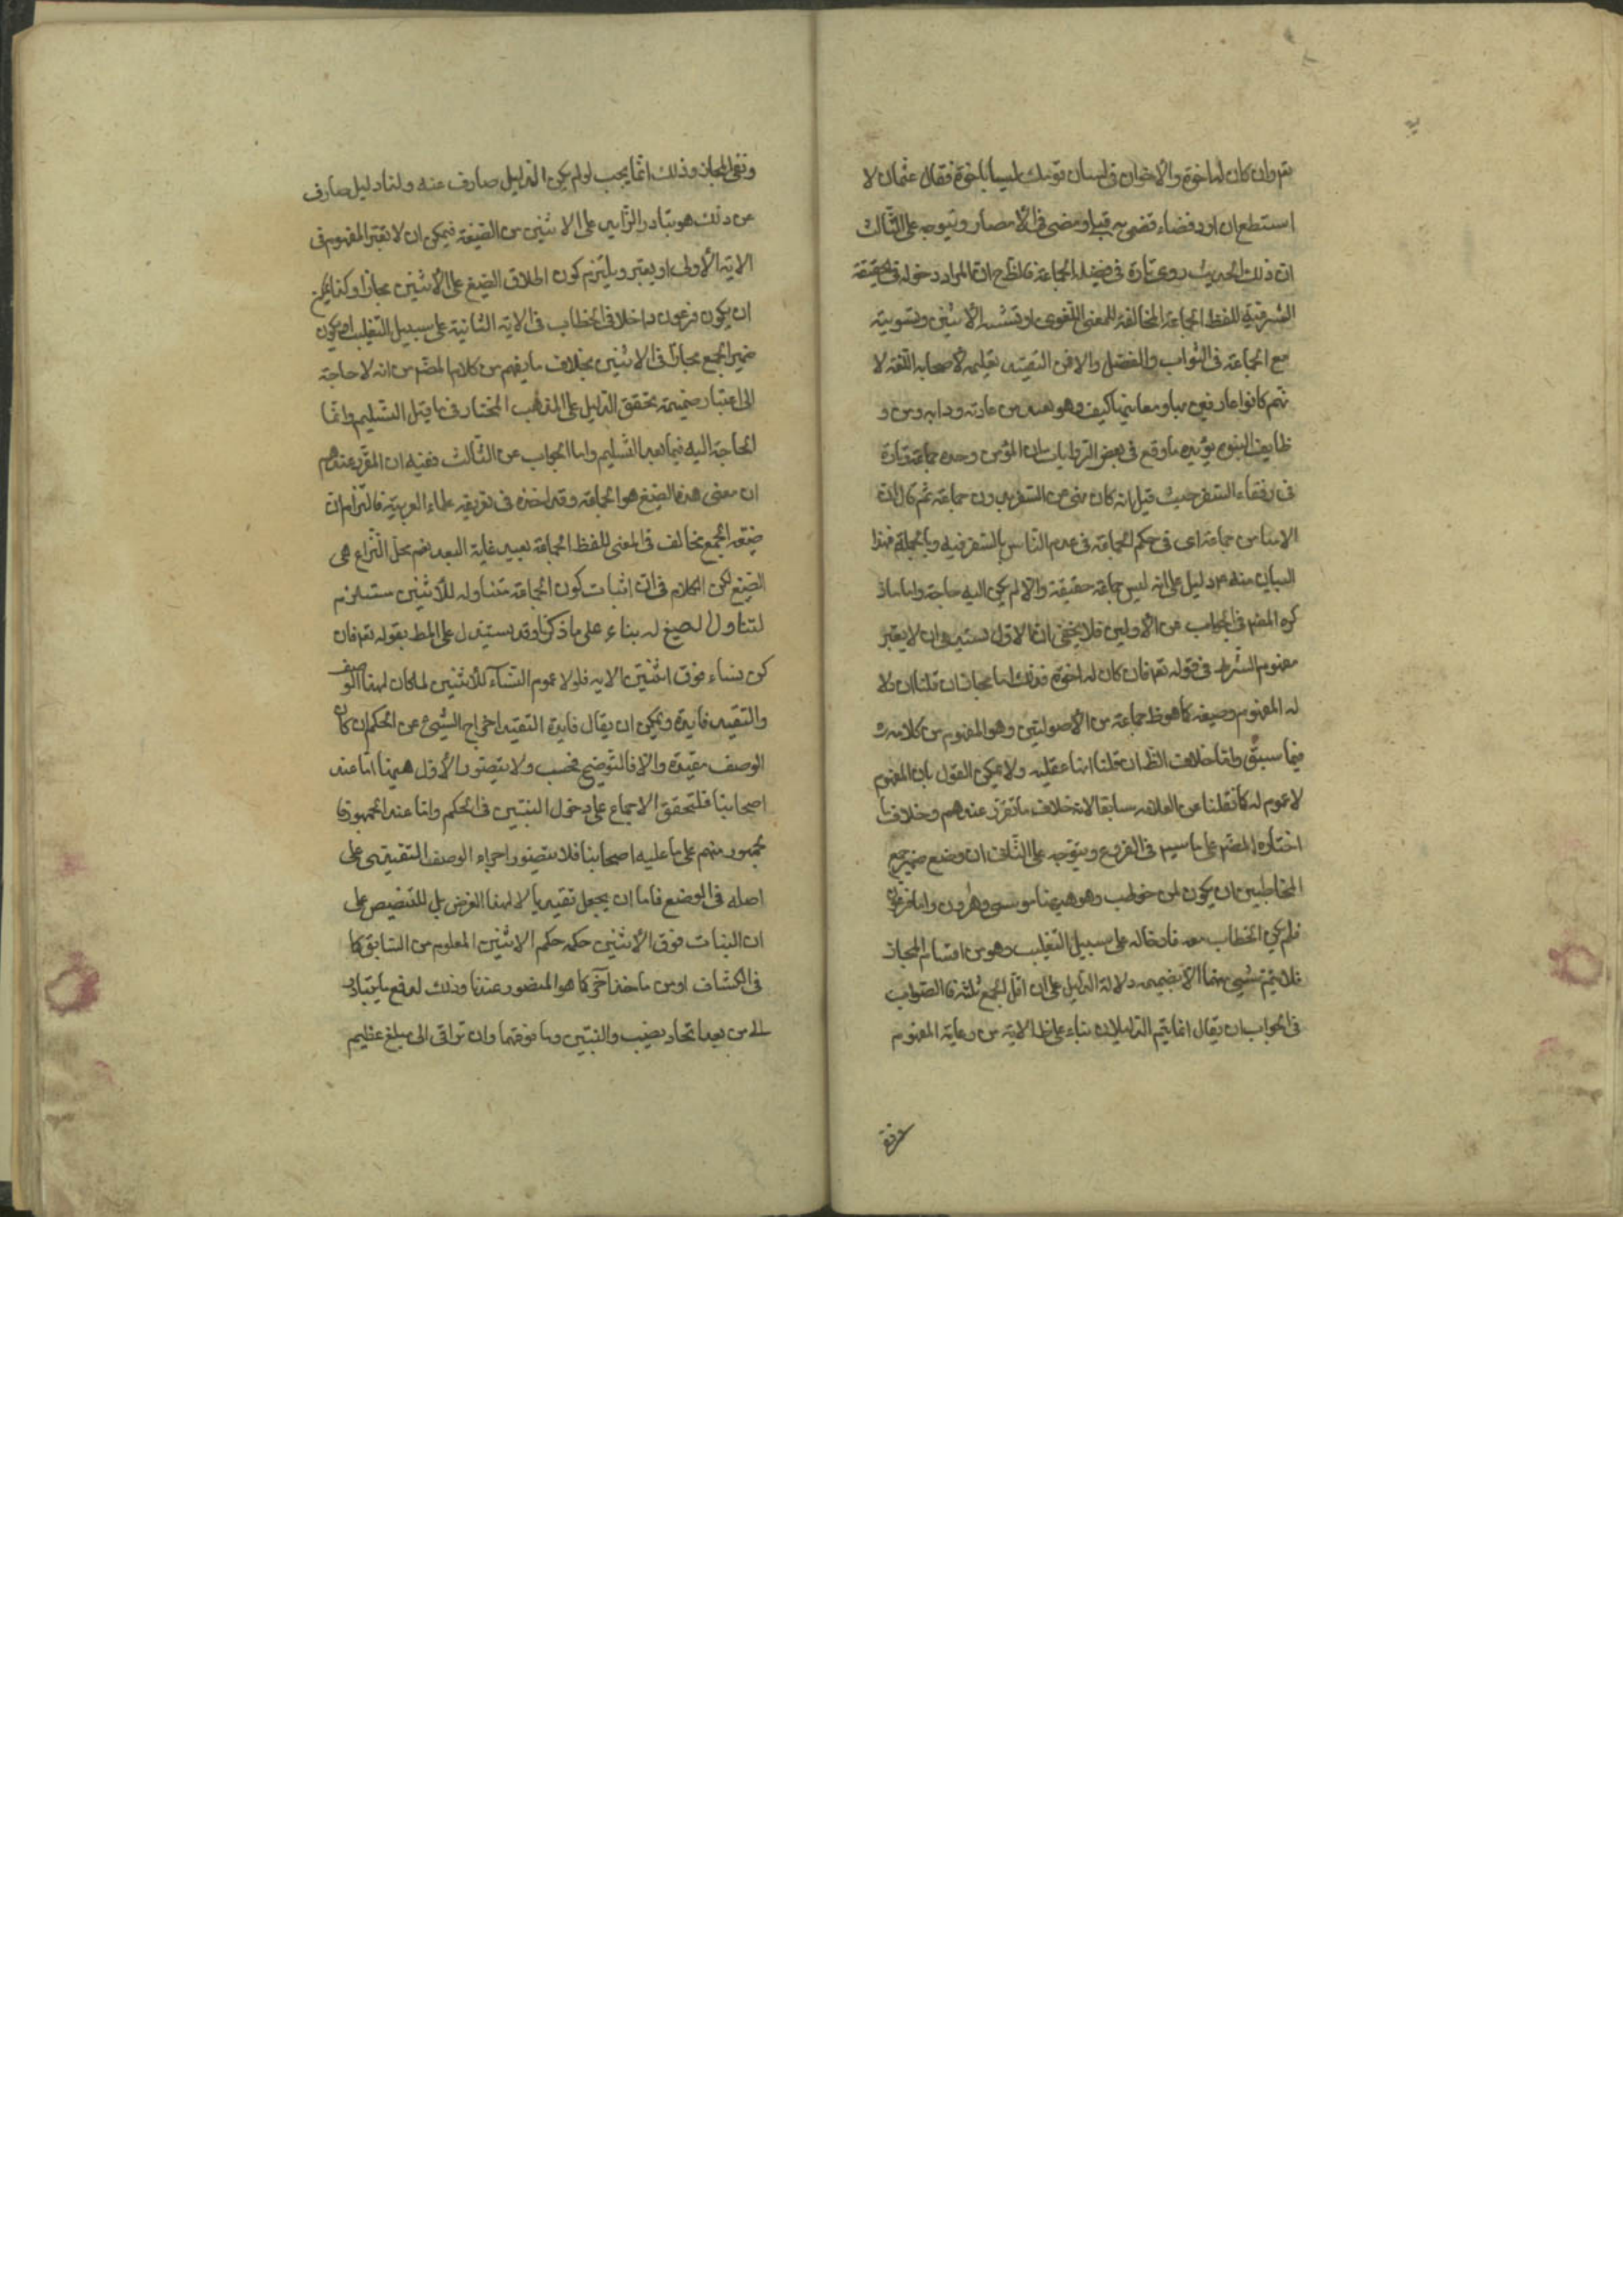 تع وان كان له اخوة والاخوان فى لسان قومك ليسا باخوة فقال عثمان لا
استطيع ان ارد قضاء قضى به قبلى ومضى فى الامصار ويتوجه على الثالث
ان ذلك الحديث روى تارة فى فضيلة الجماعة فلظ ح ان المراد دخوله فى الحقيقة
الشرعية للفظ الجماعة المخالفة للمعنى اللغوى او تشبيه الاثنين وتسويته
مع الجماعة فى الثواب والفضل والا فمن تعليمه لاصحابه اللغة لا
نهم كانوا عارفين بها وبمعانيها كيف وهو بعيد من عادته ودابه ومن و
ظايف النبوة يؤيده ما وقع فى بعض الروايات بان المؤمن وحده جماعة وتارة
فى رفقاء السفر حيث قيل انه كان نهى عن السفر بدون جماعة ثم قال ان
الاثنان جماعة اى فى حكم الجماعة فى عدم الباس بالسفر فيه وبالجملة فهذا
البيان منه ع دليل على انه ليس جماعة حقيقة والا لم يكن اليه حاجة واما ما ذ
كره المص فى الجواب عن الاولين فلا يخفى ان الاول يستدعى ان لا يعتبر
مفهوم الشرط فى قوله تع فان كان له اخوة فذلك اما مجازا ان قلنا ان لا
له المفهوم وصيغه كما هو ظ جماعة من الاصوليين وهو المفهوم من كلامه ره
فيما سبق واما خلاف الظ ان قلنا انها عقليه ولا يمكن القول بان المفهوم
لا عموم له كما نقلنا عن العلامه سابقا لانه خلاف ما تقرر عندهم وخلاف ما
اختاره المص على ما سيبه فى الفروع ويتوجه على الثانى ان وضع ضمير جمع
المخاطبين ان يكون لمن خوطب وهو ههنا موسى وهرون واما فرعون
فلم يكن الخطاب معه فادخاله على سبيل التغليب وهو من اقسام المجاز
فلا يتم شىء منهما الا بضميمة دلالة الدليل على ان اقل الجمع ثلثة فالصواب
فى الجواب ان يقال انما يتم الدليلان بناء على ظ الاية من رعاية المفهوم
ونفى المجاز وذلك انما يجب لو لم يكن الدليل صارف عنه ولنا دليل صارف
عن ذلك هو تبادر الزايد على الاثنين من الصيغة فيمكن ان لا نعتبر المفهوم فى
الاية الاولى او يعتبر ويلتزم كون اطلاق الصيغ على الاثنين مجازا وكذا يمكن
ان يكون فرعون داخلا فى الخطاب فى الاية الثانية على سبيل التغليب او يكون
ضمير الجمع مجازا فى الاثنين بخلاف ما يفهم من كلام المص من انه لا حاجة
الى اعتبار ضميمة تحقق الدليل على المذهب المختار فى ما قبل التسليم وانما
الحاجة اليه فيما بعد التسليم واما الجواب عن الثالث ففيه ان المقرر عندهم
ان معنى هذه الصيغ هو الجماعة وقد اخذه فى تعريفه علماء العربية فالتزام ان
صيغة الجمع تخالف فى المعنى للفظ الجماعة بعيد غاية البعد نعم محل النزاع هى
الصيغ لكن الكلام فى ان اثبات كون الجماعة متناوله للاثنين مستلزم
لتناول الصيغ له بناء على ما ذكرنا وقد يستدل على المط بقوله تع فان
كن نساء فوق اثنتين الايه فلولا عموم النساء للاثنين لما كان لهذا الوصف
والتقييد فايدة ويمكن ان يقال فايدة التقييد اخراج الشىء عن الحكم ان كان
الوصف مقيدة والا فالتوضيح فحسب ولا يتصور الاول ههنا اما عند
اصحابنا فلتحقق الاجماع على دخول البنتين فى الحكم واما عند الجمهور فا
لجمهور منهم على ما عليه اصحابنا فلا يتصور اجراء الوصف التقييدى على
اصله فى الوضع فاما ان يجعل تقييديا لا لهذا الغرض بل للتنصيص على
ان البنات فوق الاثنين حكمه حكم الاثنين المعلوم من السابق كما
فى الكشاف او من ماخذ آخر كما هو المنصور عندنا وذلك لدفع ما يتبادر
من بعد اتحاد نصيب والبنتين وما فوقهما وان تراقى الى مبلغ عظيم